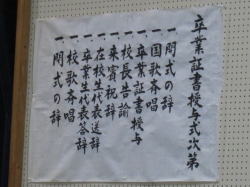 卒業証書授与式次第
一開式の辞
一国歌斉唱
一卒業証書授与
一校長告諭
一来賓祝辞
一在校生代表送辞
一卒業生代表答辞
一校歌斉唱
一閉式の辞